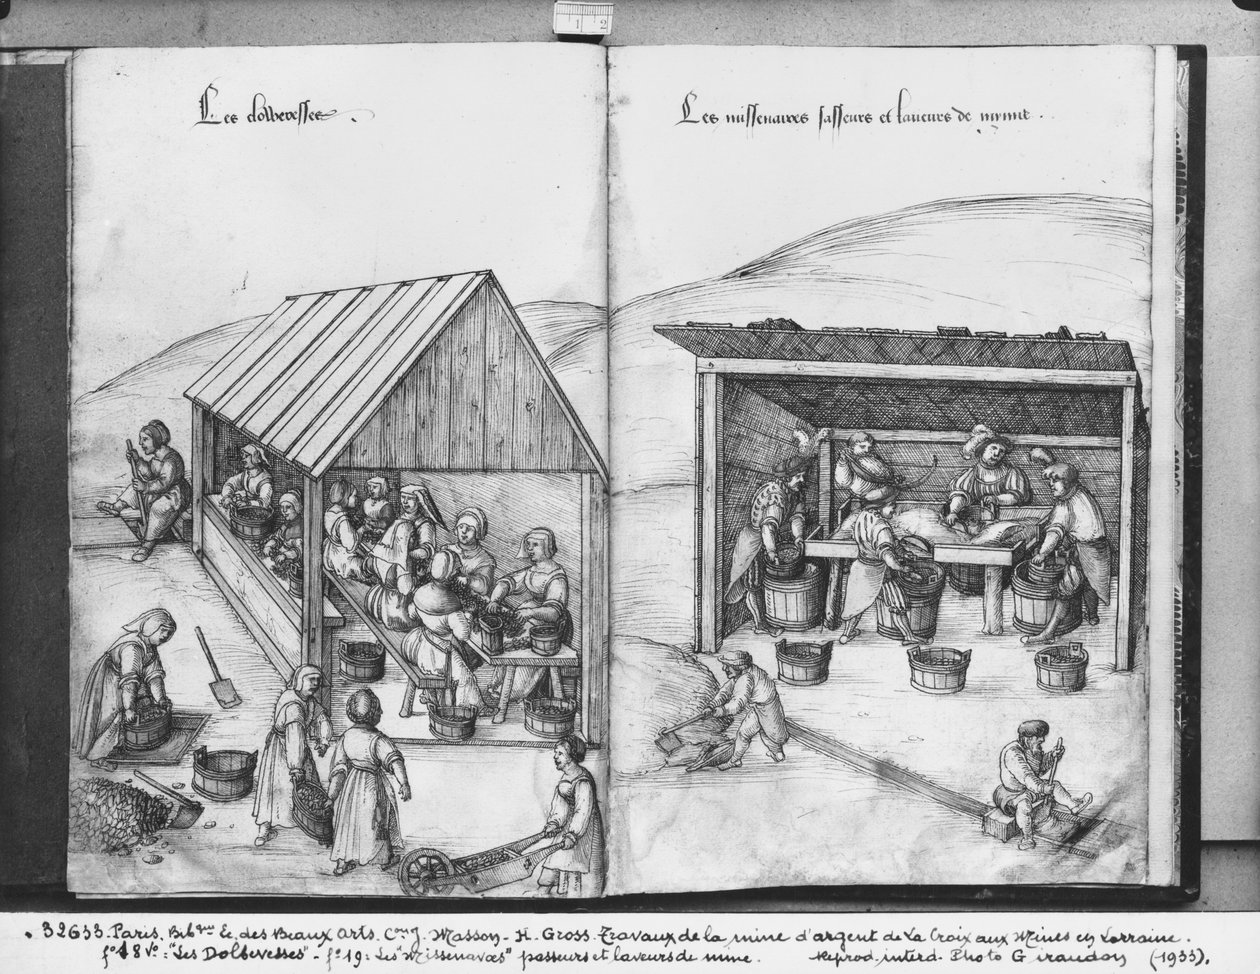 Les dolberesses.
Les missenaires sasseurs et laveurs de mynne.
1 2
. 32633. Paris. Bibque Ec. des Beaux Arts. Cong. Masson - H. Gross. Travaux de la mine d'argent de La Croix aux Mines en Lorraine.
fo 18 vo: "Les Dolberesses" - fo 19: Les "Missenaires" passeurs et laveurs de mine. Reprod. interd. Photo Giraudon (1933).